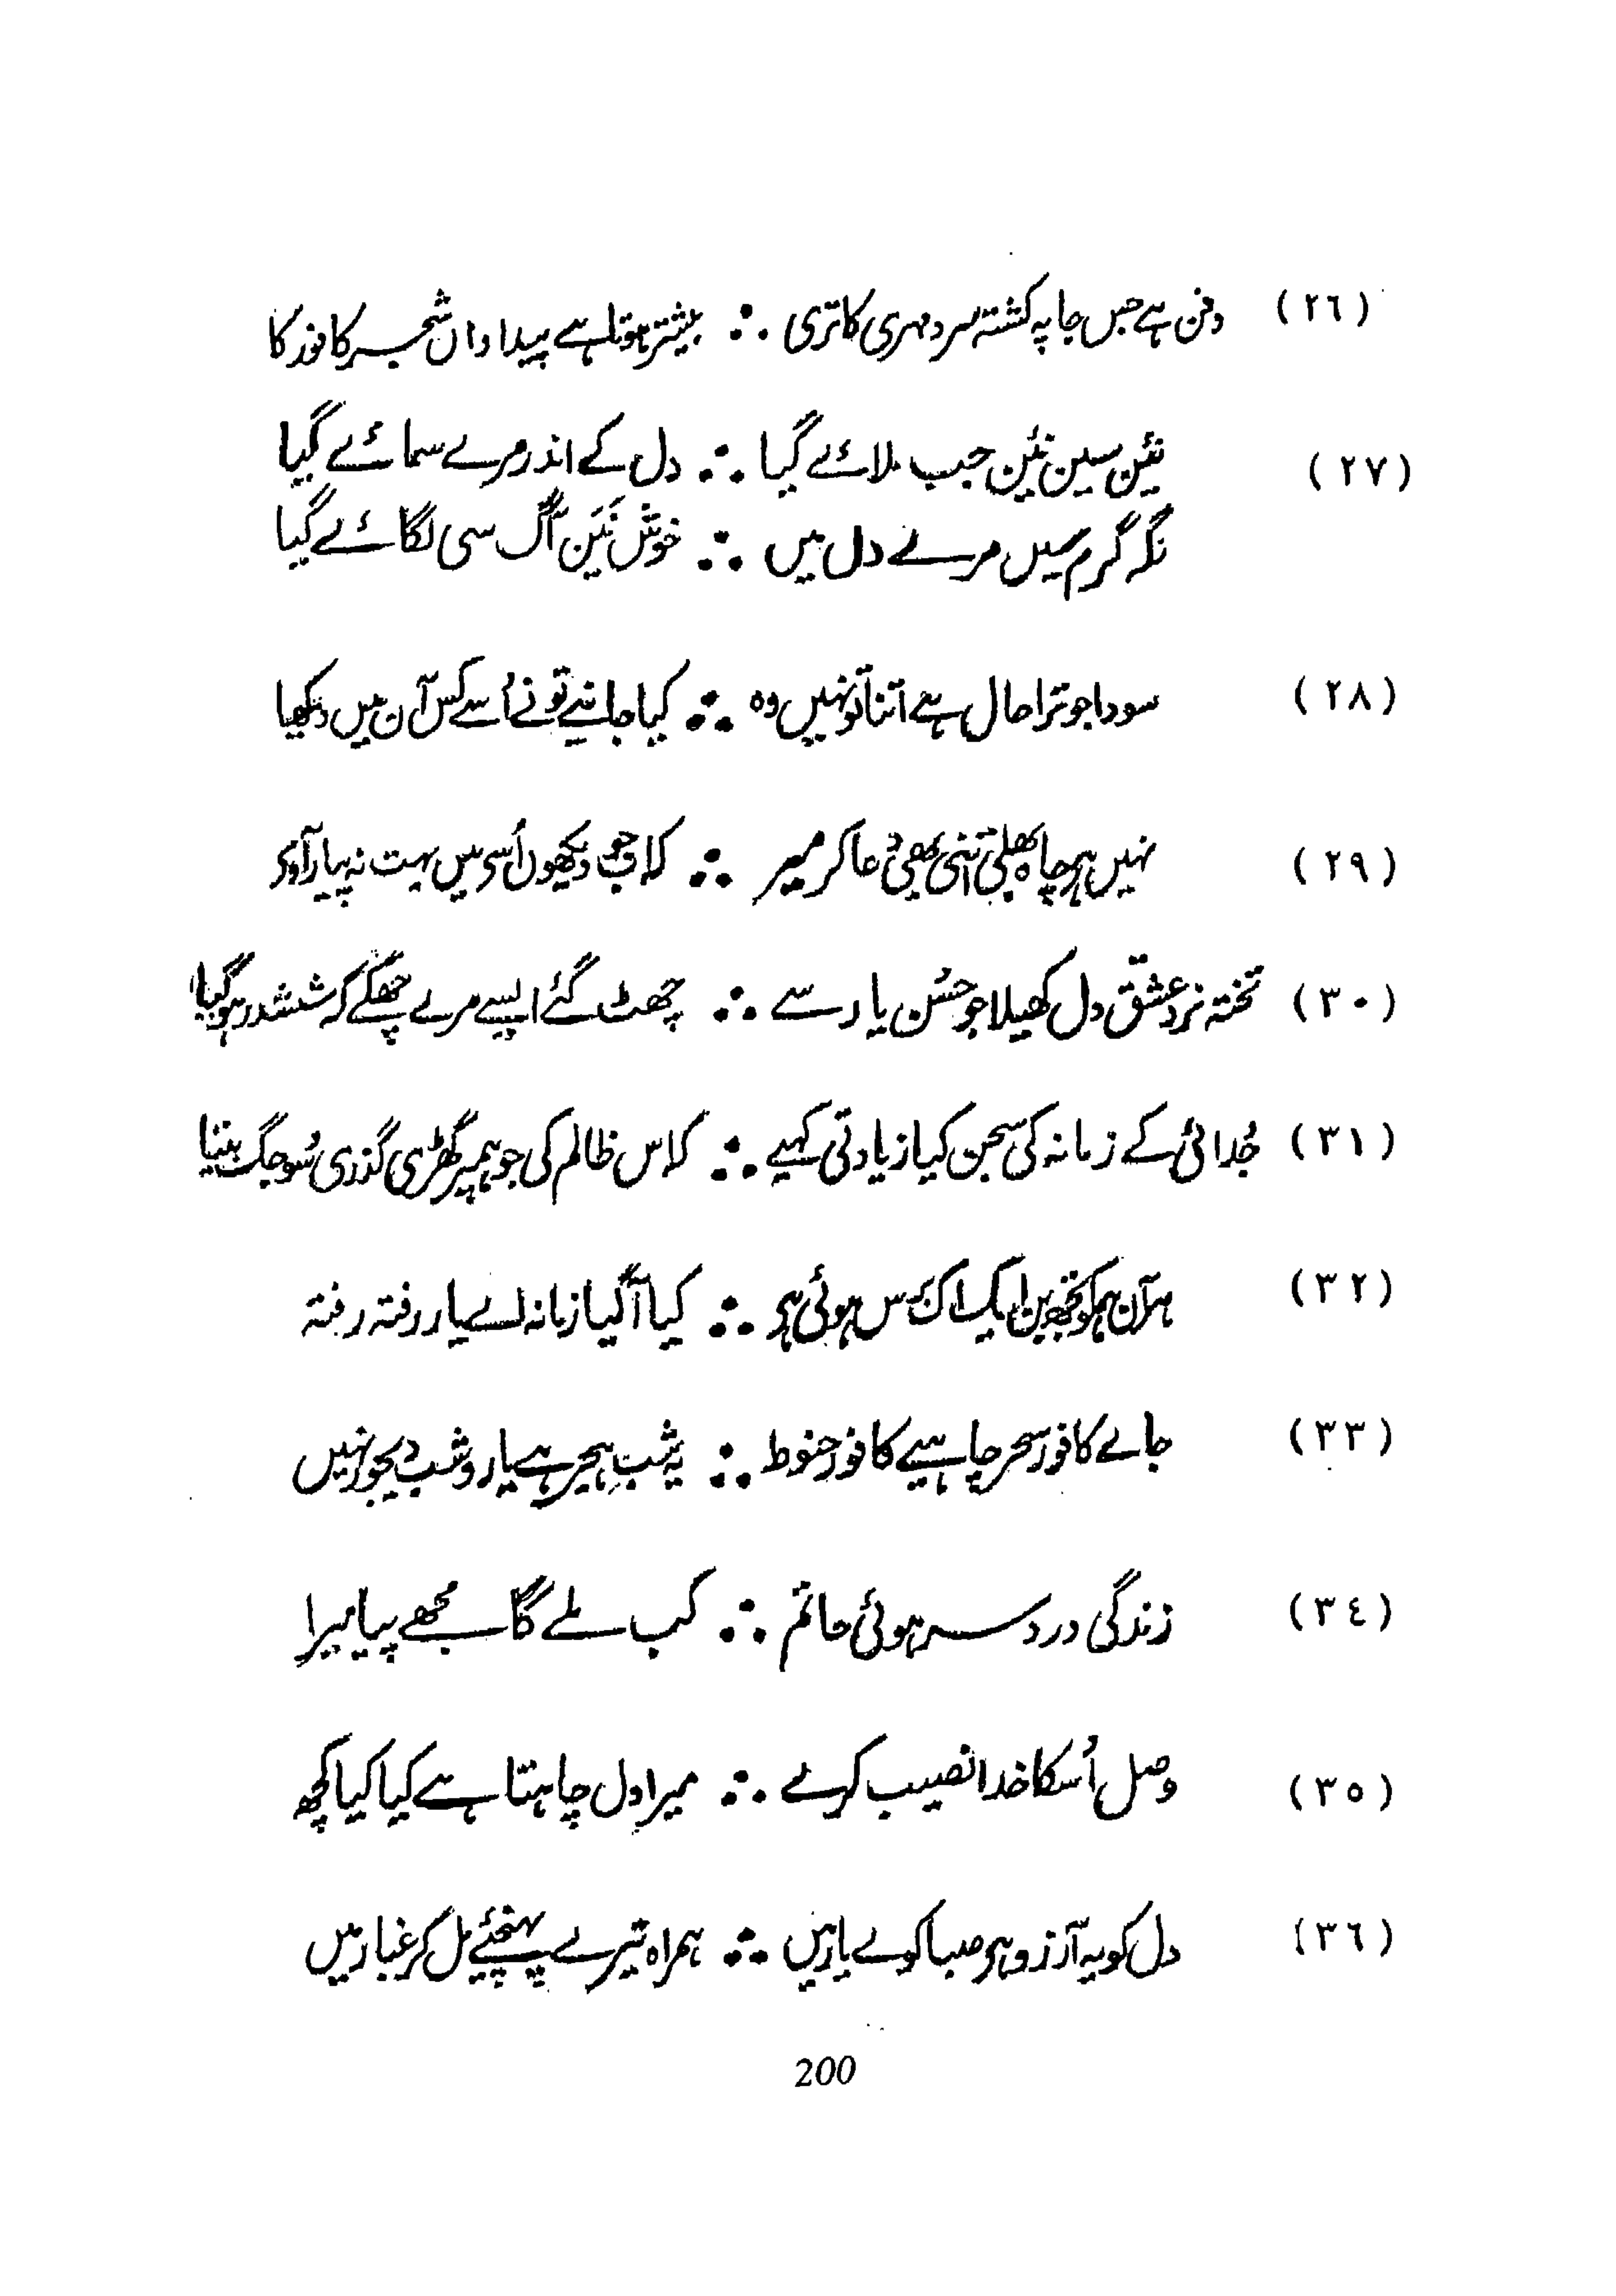 (٢٦) دفن ہے جس جا پہ کشتہ سرد مہری کا تری ∴ بیشتر ہوتا ہے پیدا واں شجر کافور کا
(٢٧) نئین سین نئین جب ملائے گیا ∴ دل کے اندر مرے سمائے گیا
نگہ گرم سیں مرے دل میں ∴ خوش نَیَن آگ سی لگائے گیا
(٢٨) سودا جو ترا حال ہے اتنا تو نہیں وہ ∴ کیا جانیے تو نے اُسے کس آن میں دیکھا
(٢٩) نہیں ہر چاہ بھلی اتنی بھی دُعا کر میر ∴ کہ اب جو دیکھوں اُسے میں بہت نہ پیار آوے
(٣٠) تختہ نرد عشق دل کھیلا جو حُسن یار سے ∴ چھٹ گئے ایسے مرے چھکے کہ ششدر ہو گیا
(٣١) جُدائی کے زمانہ کی سجن کیا زیادتی کہیے ∴ کہ اس ظالم کی جو ہم پر گھڑی گذری سُو جگ بیتا
(٣٢) ہر آن ہم کو تجھ بن ایک اک برس ہوئی ہے ∴ کیا آ گیا زمانہ اے یار رفتہ رفتہ
(٣٣) جاے کافور سحر چاہیے کافور حنوط ∴ یہ شبِ ہجر ہے یارو شب دیجور نہیں
(٣٤) زندگی درد سر ہوئی حاتم ∴ کب ملے گا مجھے پیا میرا
(٣٥) وصل اُسکا خدا نصیب کرے ∴ میرا دل چاہتا ہے کیا کیا کچھ
(٣٦) دل کو یہ آرزو ہے صبا کوے یار میں ∴ ہمراہ تیرے پہنچئے مل کر غبار میں
200